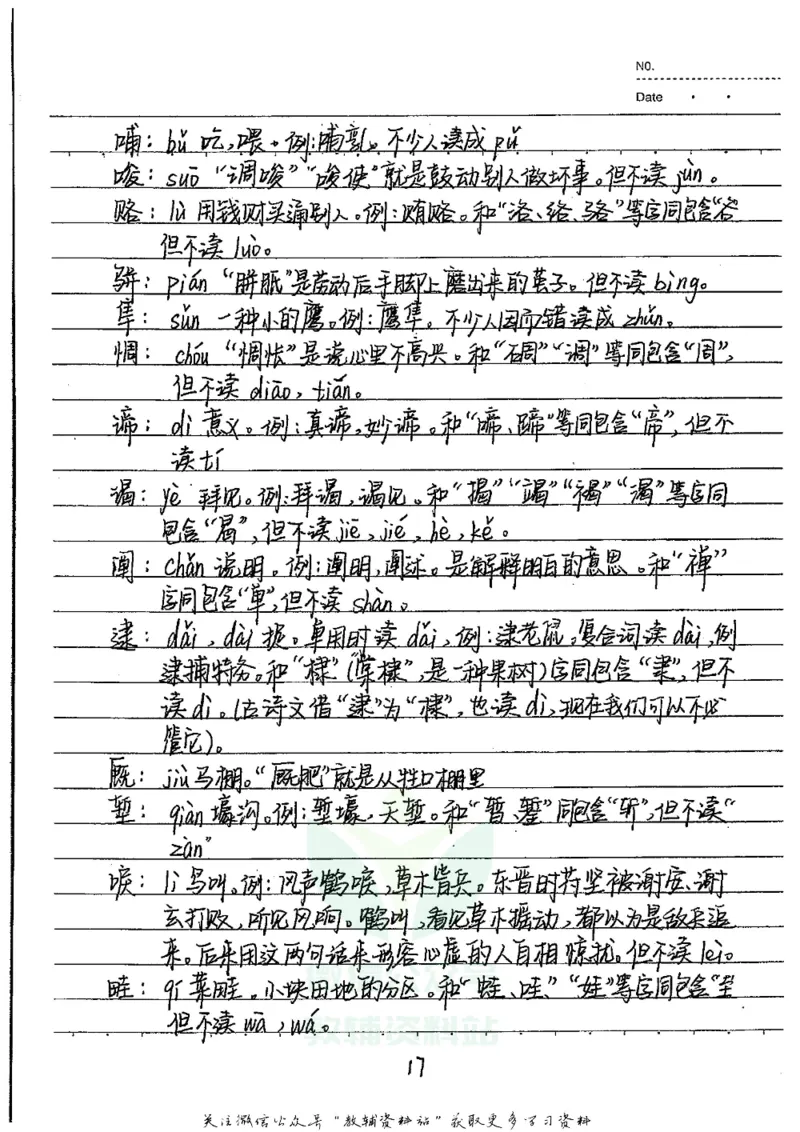 NO.
Date
哺：bǔ 吃，喂。例：哺乳。不少人读成 pǔ
唆：suō “调唆”“唆使”就是鼓动别人做坏事。但不读 jùn。
赂：lù 用钱财买通别人。例：贿赂。和“洛、络、骆”等字同包含“各
但不读 luò。
骈：pián “胼胝”是劳动后手脚上磨出来的茧子。但不读 bìng。
隼：sǔn 一种小的鹰。例：鹰隼。不少人因而错读成 zhǔn。
惆：chóu “惆怅”是说心里不高兴。和“碉”“调”等同包含“周”，
但不读 diāo，tiáo。
谛：dì 意义。例：真谛，妙谛。和“啼、蹄”等同包含“帝”，但不
读 tí
谒：yè 拜见。例：拜谒，谒见。和“揭”“竭”“褐”“渴”等字同
包含“曷”，但不读 jiē，jié，hè，kě。
阐：chǎn 说明。例：阐明，阐述。是解释明白的意思。和“禅”
字同包含“单”，但不读 shàn。
逮：dǎi，dài 捉。单用时读 dǎi，例：逮花鼠。复合词读 dài，例
逮捕特务。和“棣”（“棠棣”，是一种果树）字同包含“隶”，但不
读 dì。（古诗文借“逮”为“棣”，也读 dì，现在我们可以不必
管它）。
厩：jiù 马棚。“厩肥”就是从牲口棚里
堑：qiàn 壕沟。例：堑壕，天堑。和“暂、錾”同包含“斩”，但不读“
zàn”
唳：lì 鸟叫。例：风声鹤唳，草木皆兵。东晋时苻坚被谢安、谢
玄打败，听见风响。鹤叫，看见草木摇动，都以为是敌兵追
来。后来用这两句话来形容心虚的人自相惊扰。但不读 lèi。
畦：qí 菜畦。小块田地的分区。和“蛙、哇”“娃”等字同包含“圭
但不读 wā，wá。
教辅资料站
17
关注微信公众号“教辅资料站”获取更多学习资料